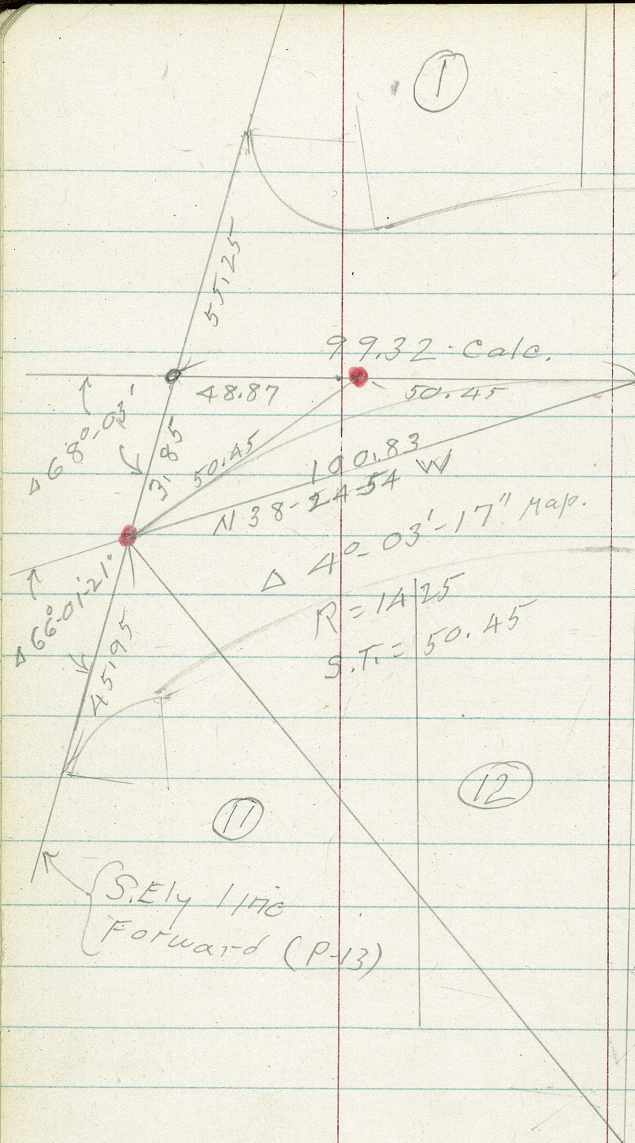 1
55.25
99.32 - Calc.
48.87
50.45
Δ 68°-03'
3.85
50.45
100.83
N 38-24-54 W
Δ 4°-03'-17" Map.
Δ 66°-01'-21"
R = 1425
S.T. = 50.45
45.95
12
11
S.Ely line
Forward (P-13)